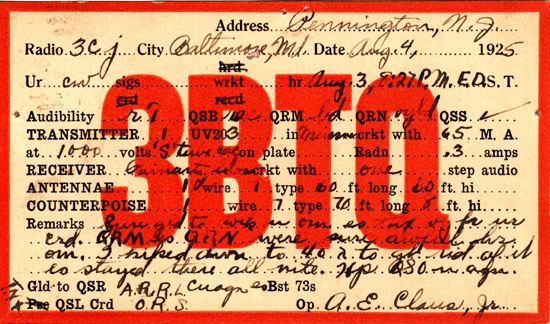 Address Pennington, N. J.
Radio 3Cj City Baltimore, Md. Date Aug. 4, 1925
hrd
Ur cw sigs wrkt hr Aug 3, 8:27 P.M. E.D.S.T.
crd recd
3BTQ
Audibility r7 QSB QRM QRN QSS
TRANSMITTER 1 UV203 in crkt with 65 M. A.
at 1000 volts on plate Radn .3 amps
RECEIVER crkt with one step audio
ANTENNAE 1 wire 1 type 60 ft. long 60 ft. hi
COUNTERPOISE 1 wire 7 type 70 ft. long 8 ft. hi
Remarks Sure gld to wrk u om es tnx fr ur
crd. QRM es QRN were sure awful hr
om. I down to 40 to get rid of it
es stayed there all nite. Hp CSO n agn.
Gld to QSR A.R.R.L. Cuagn es Bst 73s
Pse QSL Crd O.R.S. Op. A. E. Claus, Jr.